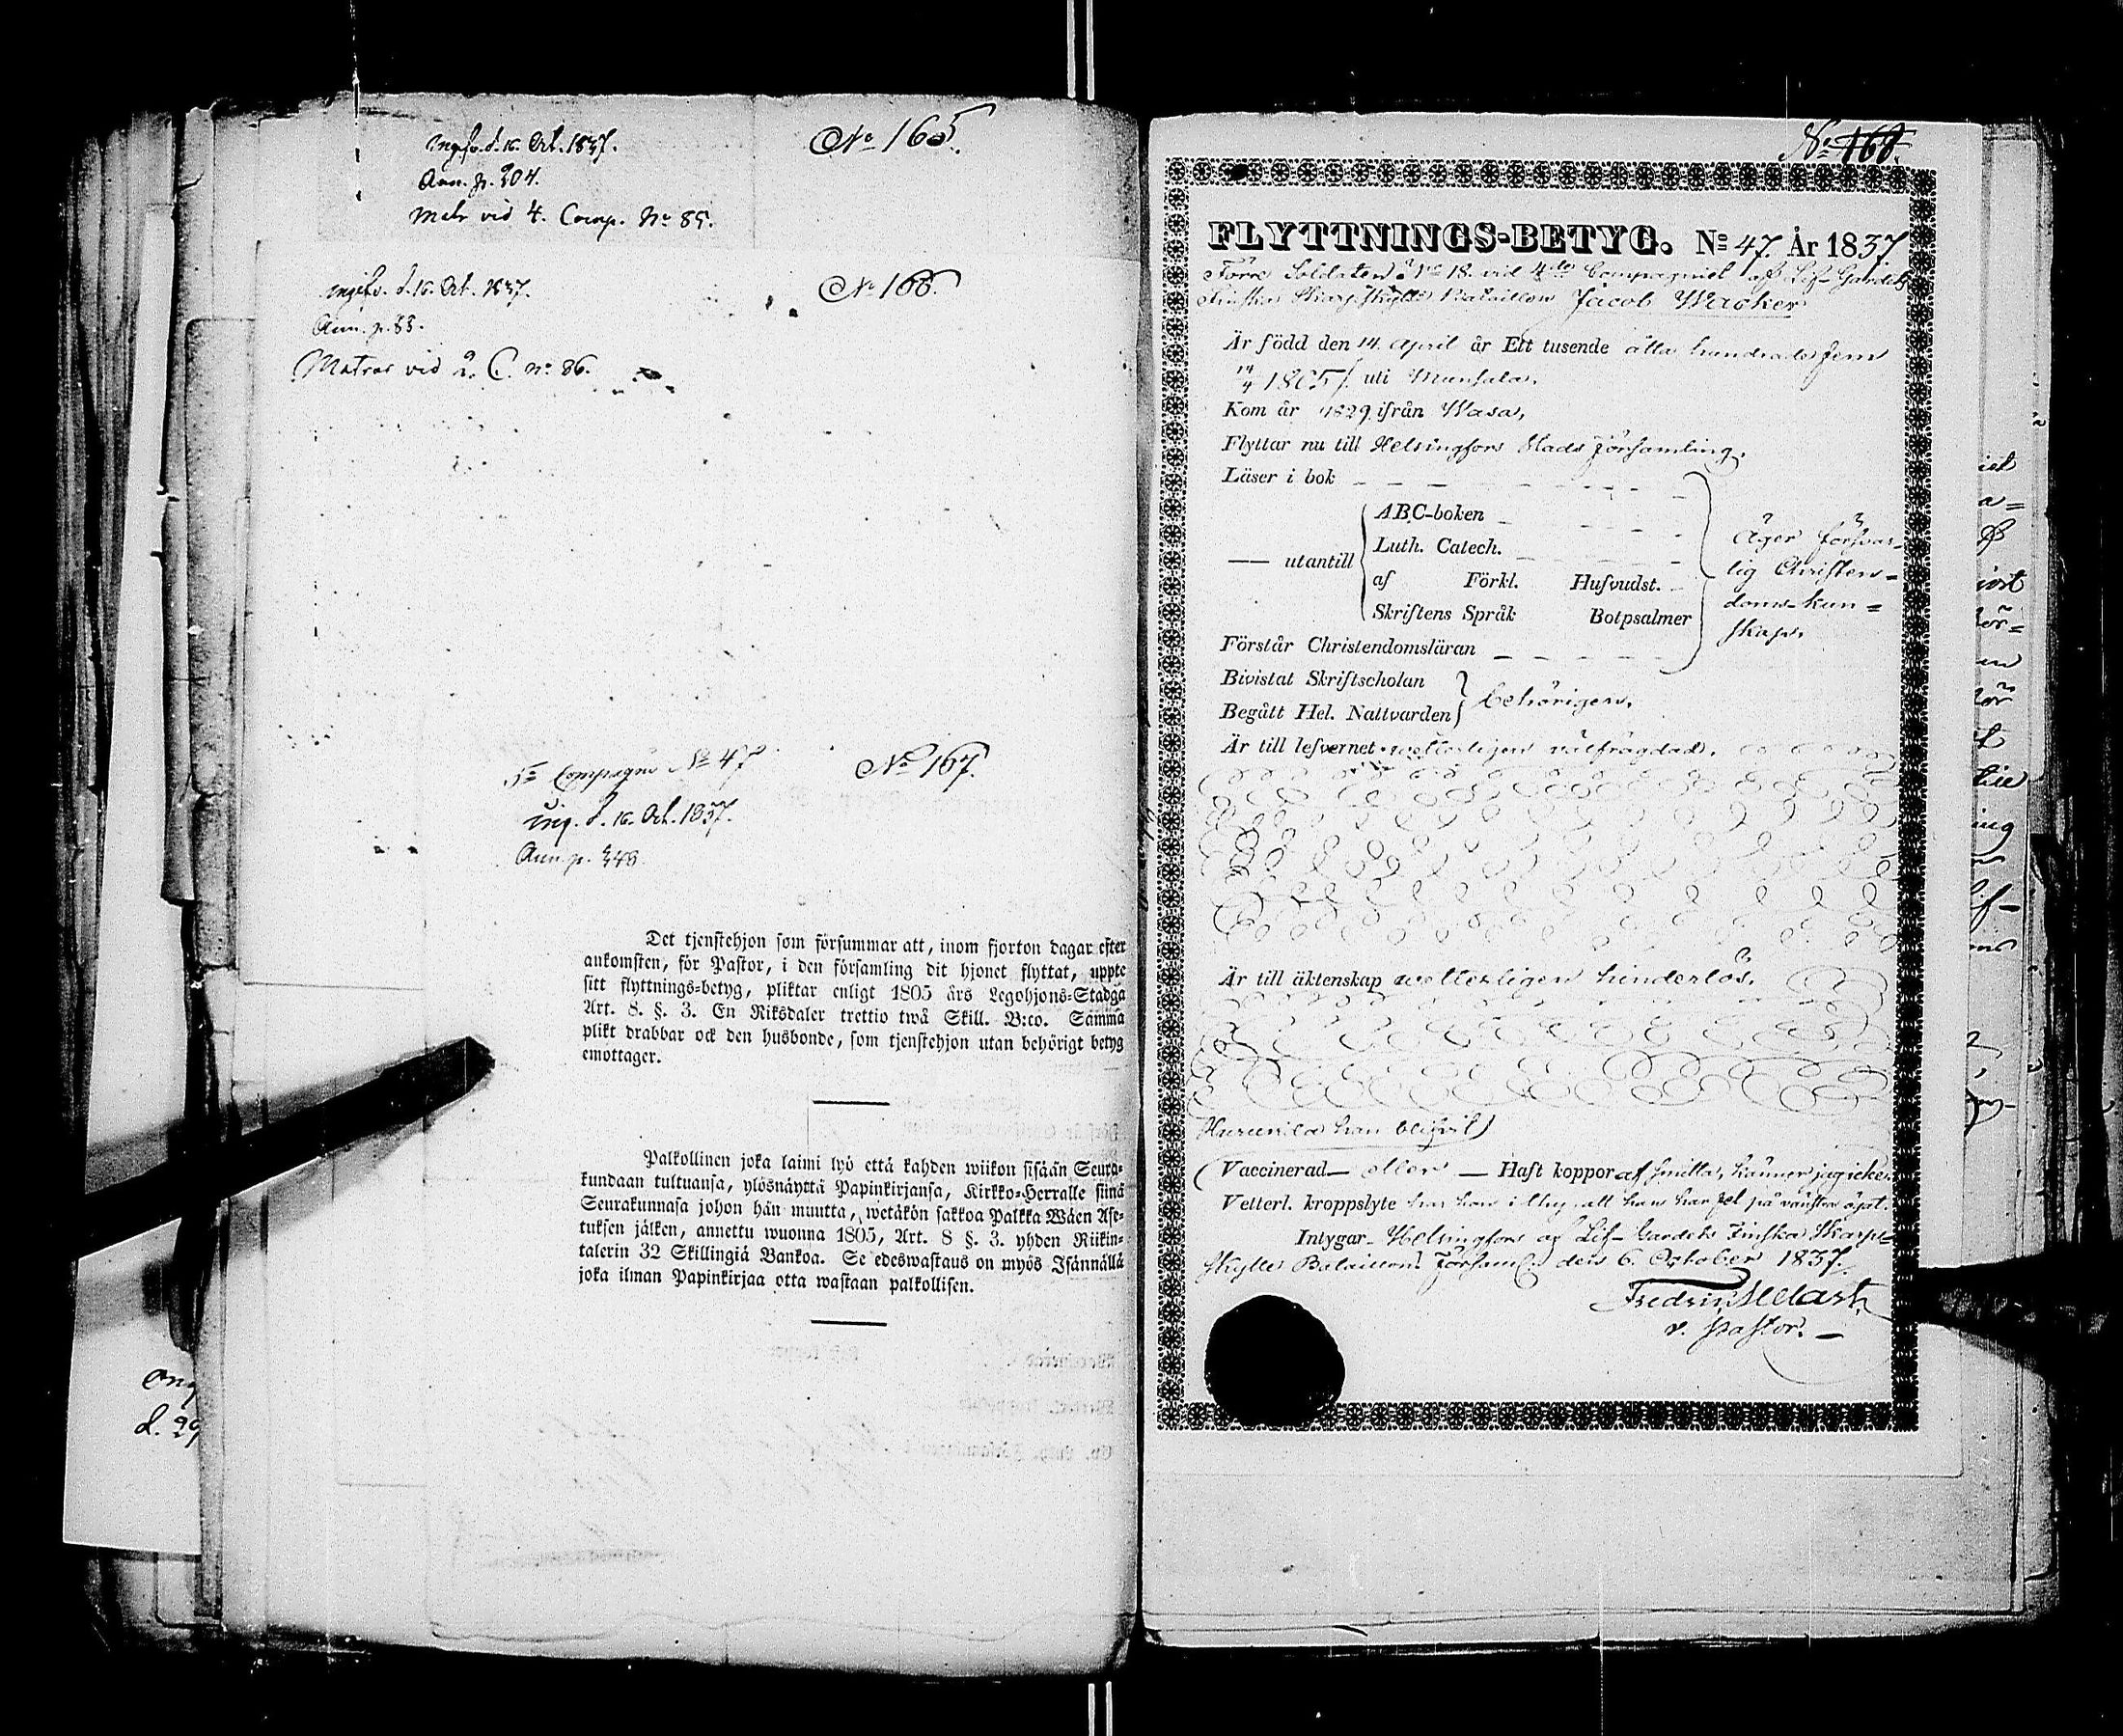 Ingfr. d. 16. Oct. 1837.
Ann. p. 204.
Matr vid 4. Comp. No 85.
No 165.
Ingifv. d. 16. Oct. 1837.
Ann. p. 83.
Matras vid 2. C. no 86.
No 166.
5te Compagnie No 47
ing. d. 16. Oct. 1837.
Ann. p.
No 167.
Det tjenstehjon som försummar att, inom fjorton dagar efter
ankomsten, för Pastor, i den församling dit hjonet flyttat, uppte
sitt flyttnings-betyg, pliktar enligt 1805 års Legohjons-Stadga
Art. 8. §. 3. En Riksdaler trettio twå Skill. B:co. Samma
plikt drabbar ock den husbonde, som tjenstehjon utan behörigt betyg
emottager.
Palkollinen joka laimi lyö että kahden wiikon sisään Seura-
kundaan tultuansa, ylösnäyttä Papinkirjansa, Kirkko-Herralle siinä
Seurakunnasa johon hän muutta, wetäkön sakkoa Palkka Wäen Ase-
tuksen jälken, annettu wuonna 1805, Art. 8 §. 3. yhden Riikin-
talerin 32 Skillingiä Bankoa. Se edeswastaus on myös Isännällä
joka ilman Papinkirjaa otta wastaan palkollisen.
d. 29
No 168.
FLYTTNINGS-BETYG. No 47. År 1837
Förre Soldaten No 18. vid 4de Compagniet af Lif-Gardets
Finska Skarpskytte Bataillon Jacob Wacker
Är född den 14. April år Ett tusende åtta hundrade fem
14/4 1805/. uti Munsala.
Kom år 1829. ifrån Wasa,
Flyttar nu till Helsingfors Stads församling.
Läser i bok
— utantill
ABC-boken
Luth. Catech.
af Förkl. Husvudst.
Skriftens Språk Botpsalmer
Äger försvar-
lig Christen-
doms-kun-
skap.
Förstår Christendomsläran
Bivistat Skriftscholan
Begått Hel. Nattvarden
behörigen.
Är till lefvernet wetterligen välfrägdad.
Är till äktenskap wetterligen hinderlös.
Huruvida han blifvit)
(Vaccinerad — eller — Haft koppor af smitta, känner jag icke.
Vetterl. kroppslyte har han i thy att han har fel på vänstra ögat.
Intygar Helsingfors af Lif-Gardets Finska Skarp-
skytte Bataillons Församl. den 6. October 1837.
v. Pastor.